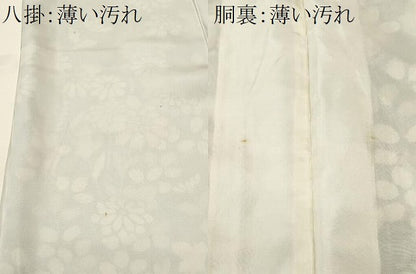 八掛:薄い汚れ
胴裏:薄い汚れ